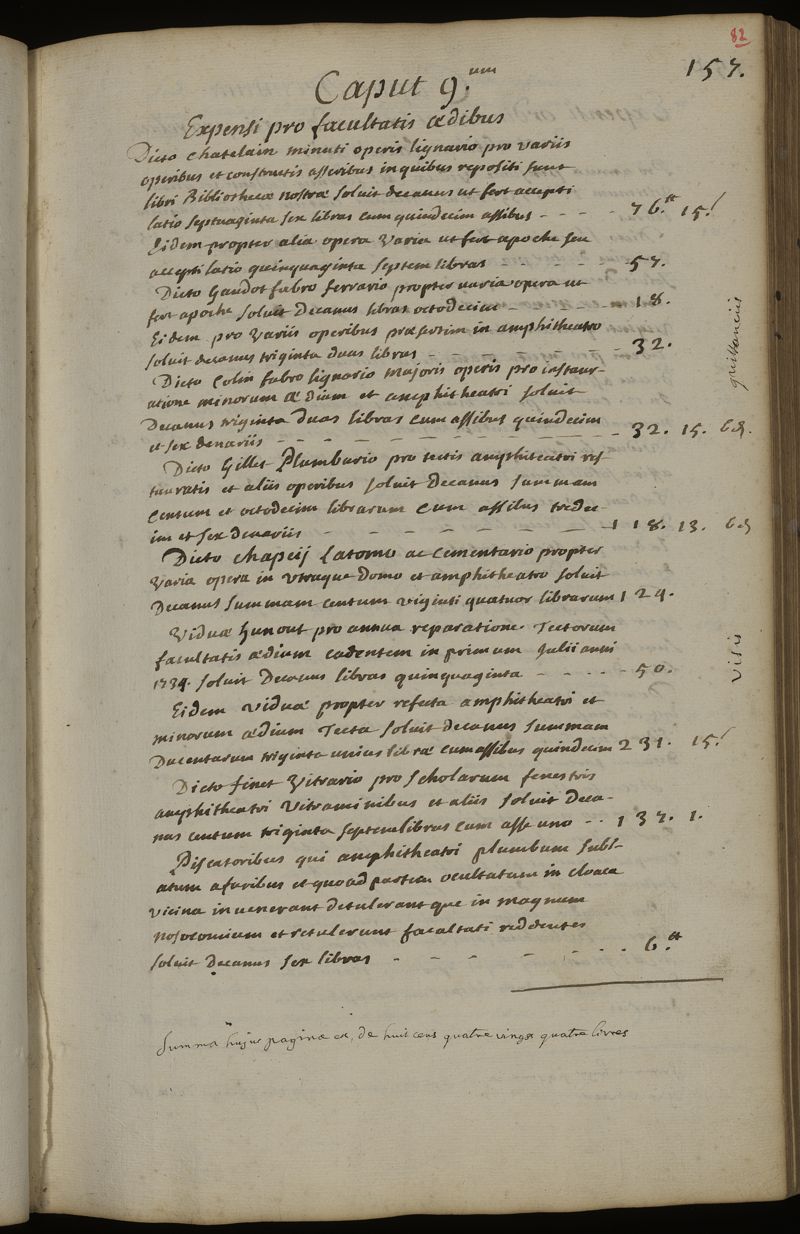 82
157.
Caput 9.um
Expensi pro facultatis ædibus
Dicto Chatelain minuti operis lignario pro variis
operibus et constructis asseribus in quibus repositi sunt
libri Bibliothecæ nostræ soluit decanus ut fert accepti
latio septuaginta sex libras cum quindecim assibus - - - - 76.tt 15.s
Eidem propter alia opera varia ut fert apocha seu
accepti latio quinquaginta septem libras - - - - - - 57.
Dicto Gaudot fabro ferrario propter varia opera ut
fert apocha soluit Decanus libras octodecim - - - - - - 18.
Eidem pro variis operibus præsertim in amphitheatro
soluit decanus triginta duas libras - - - - - - - - 32.
Dicto Colin fabro lignario majoris operis pro instaur-
atione minorum ædium et amphitheatri soluit
Decanus triginta duas libras cum assibus quindecim
et sex denariis - - - - - - - - - - - - 32. 15. 6 d.
Dicto Gillet Plumbario pro tectis amphiteatri ref-
tauratis et aliis operibus soluit decanus summam
centum et octodecim librarum cum assibus trede-
im et sex denariis - - - - - - - - - - 118. 13. 6 d
Dicto chapeij Latomo ac cementario propter
varia opera in utraque domo et amphitheatro soluit
Decanus summam centum viginti quatuor librarum 124.
Viduæ hunout pro annua reparatione tectorum
facultatis ædium cadentem in primum Julii anni
1734. soluit Decanus libras quinquaginta - - - - - 50.
Eidem viduæ propter refecta amphitheatri et
minorum ædium tecta soluit decanus summam
Ducentarum triginta unius libræ cum assibus quindecim 231. 15.s
Dicto finet vitrario pro scholarum fenestris
amphitheatri vitraminibus et aliis soluit Deca-
nus centum triginta septem libras cum asse uno - - 137. 1.
Piscatoribus qui amphitheatri plumbum subl-
atum a furibus et quoad partem ocultatum in cloaca
vicina invenerant detulerantque in magnum
nosocomium et retulerunt facultati reddentes
soluit Decanus sex libras - - - - - - - 6.tt
Summa hujus paginæ est, de huit cens quatre vingt quatre livres
quittanciis
visis